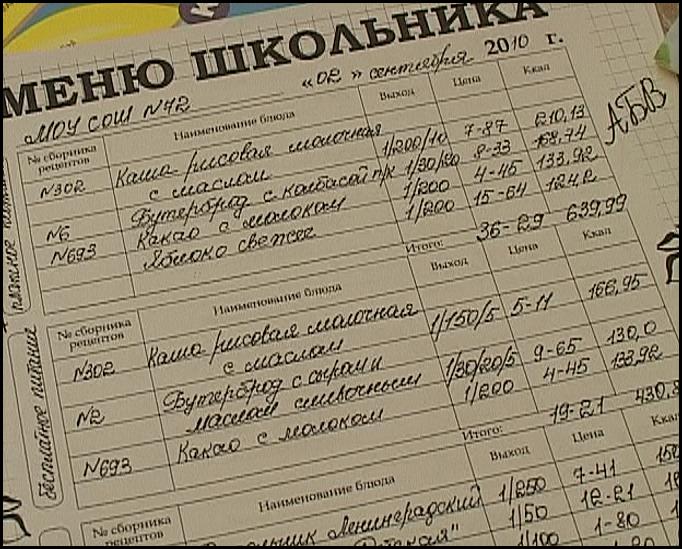 МЕНЮ ШКОЛЬНИКА
МОУ СОШ №72 «02» сентября 2010 г.
№ сборника рецептов Наименование блюда Выход Цена Ккал
АБВ
№302 Каша рисовая молочная
с маслом 1/200/10 7-87 210,13
№6 Бутерброд с колбасой п/к 1/30/20 8-33 168,74
№693 Какао с молоком 1/200 4-45 133,92
Яблоко свежее 1/200 15-64 124,2
Итого: 36-29 639,99
бесплатное питание
№ сборника рецептов Наименование блюда Выход Цена Ккал
№302 Каша рисовая молочная
с маслом 1/150/5 5-11 166,95
№2 Бутерброд с сыром и
маслом сливочным 1/30/20/5 9-65 130,0
№693 Какао с молоком 1/200 4-45 133,92
Итого: 19-21 430,8
№ сборника Наименование блюда Выход Цена Ккал
Ленинградский 1/250 7-41
1/50 12-21
1/100 1-80